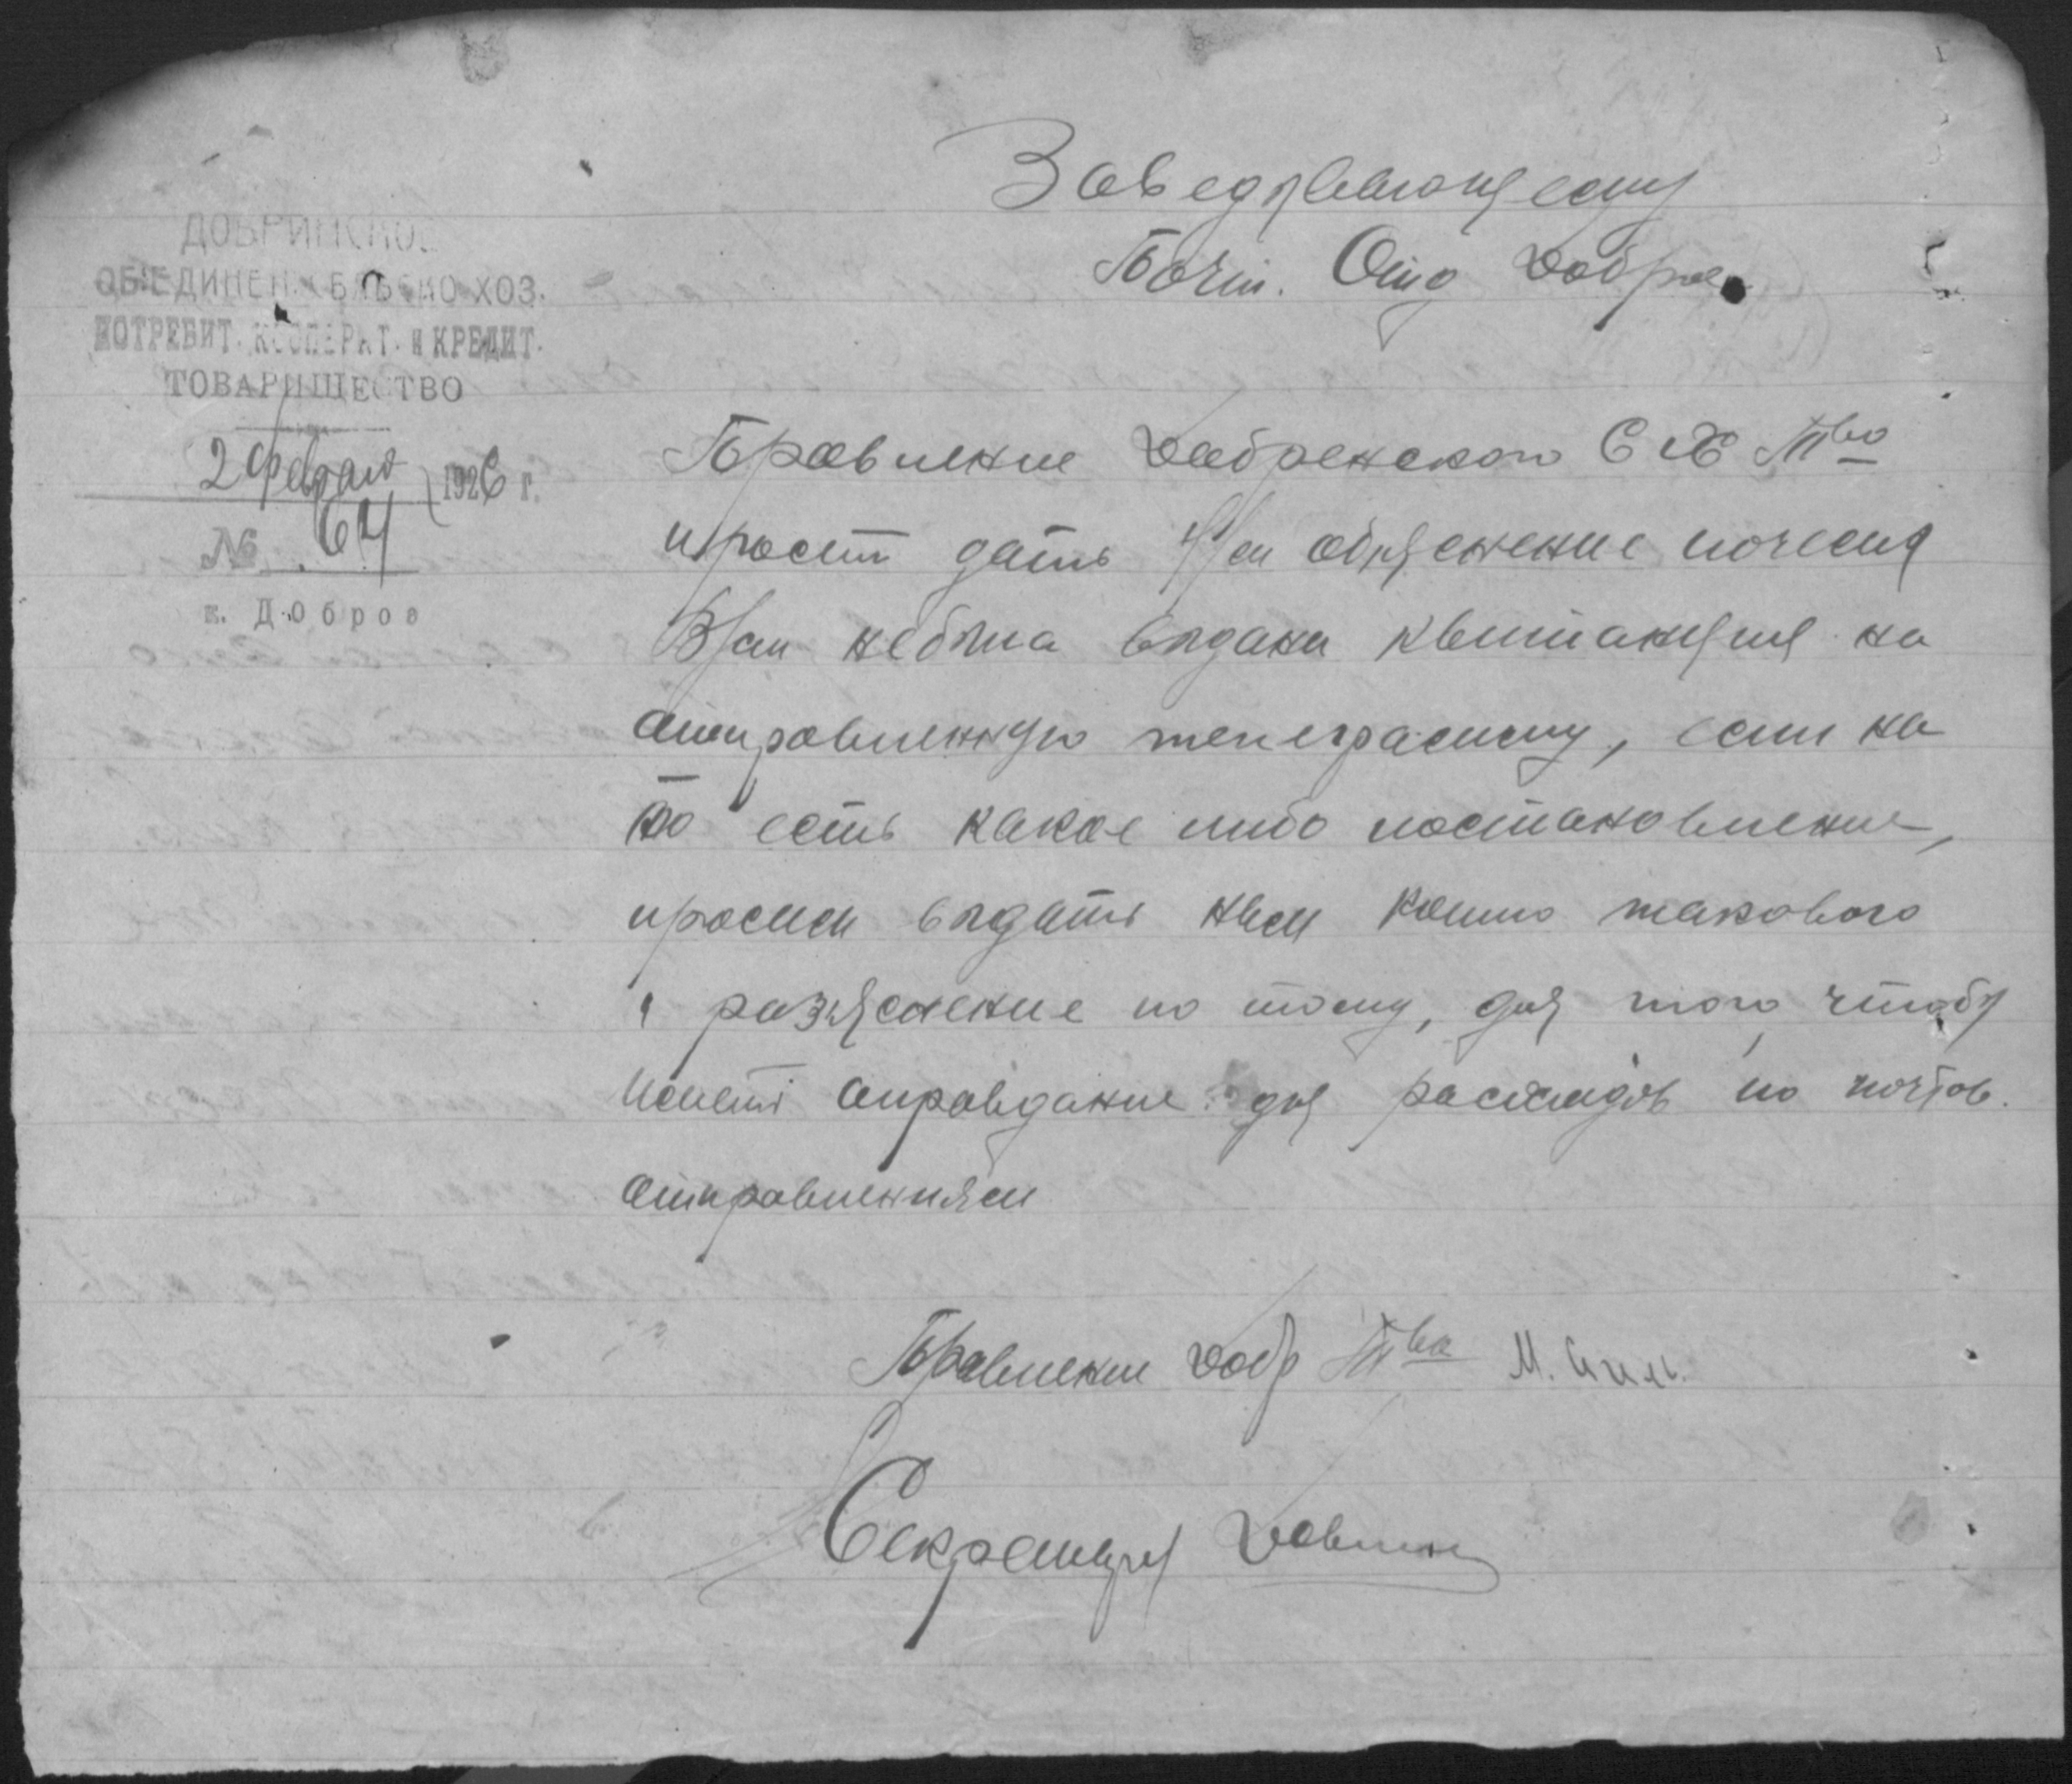 ДОБРИНСКОЕ
ОБЪЕДИНЕН. СЕЛЬСКО ХОЗ.
ПОТРЕБИТ. КООПЕРАТ. и КРЕДИТ.
ТОВАРИЩЕСТВО
2 февраля 1926 г.
№ 64
с. Доброе
Заведывающему
Почт. Отд Доброе
Правление Добренскаго С Х Т-во
просит дать объяснение почему
Вам небыла выдана квитанция на
отправленную телеграмму, если на
то есть какое либо постановление,
просим выдать нам копию такового
и разъяснение по тому, для того чтобы
Иметь оправдание для расходов по почтов.
отправлениям
Правление Добр Т-ва М.
Секретарь